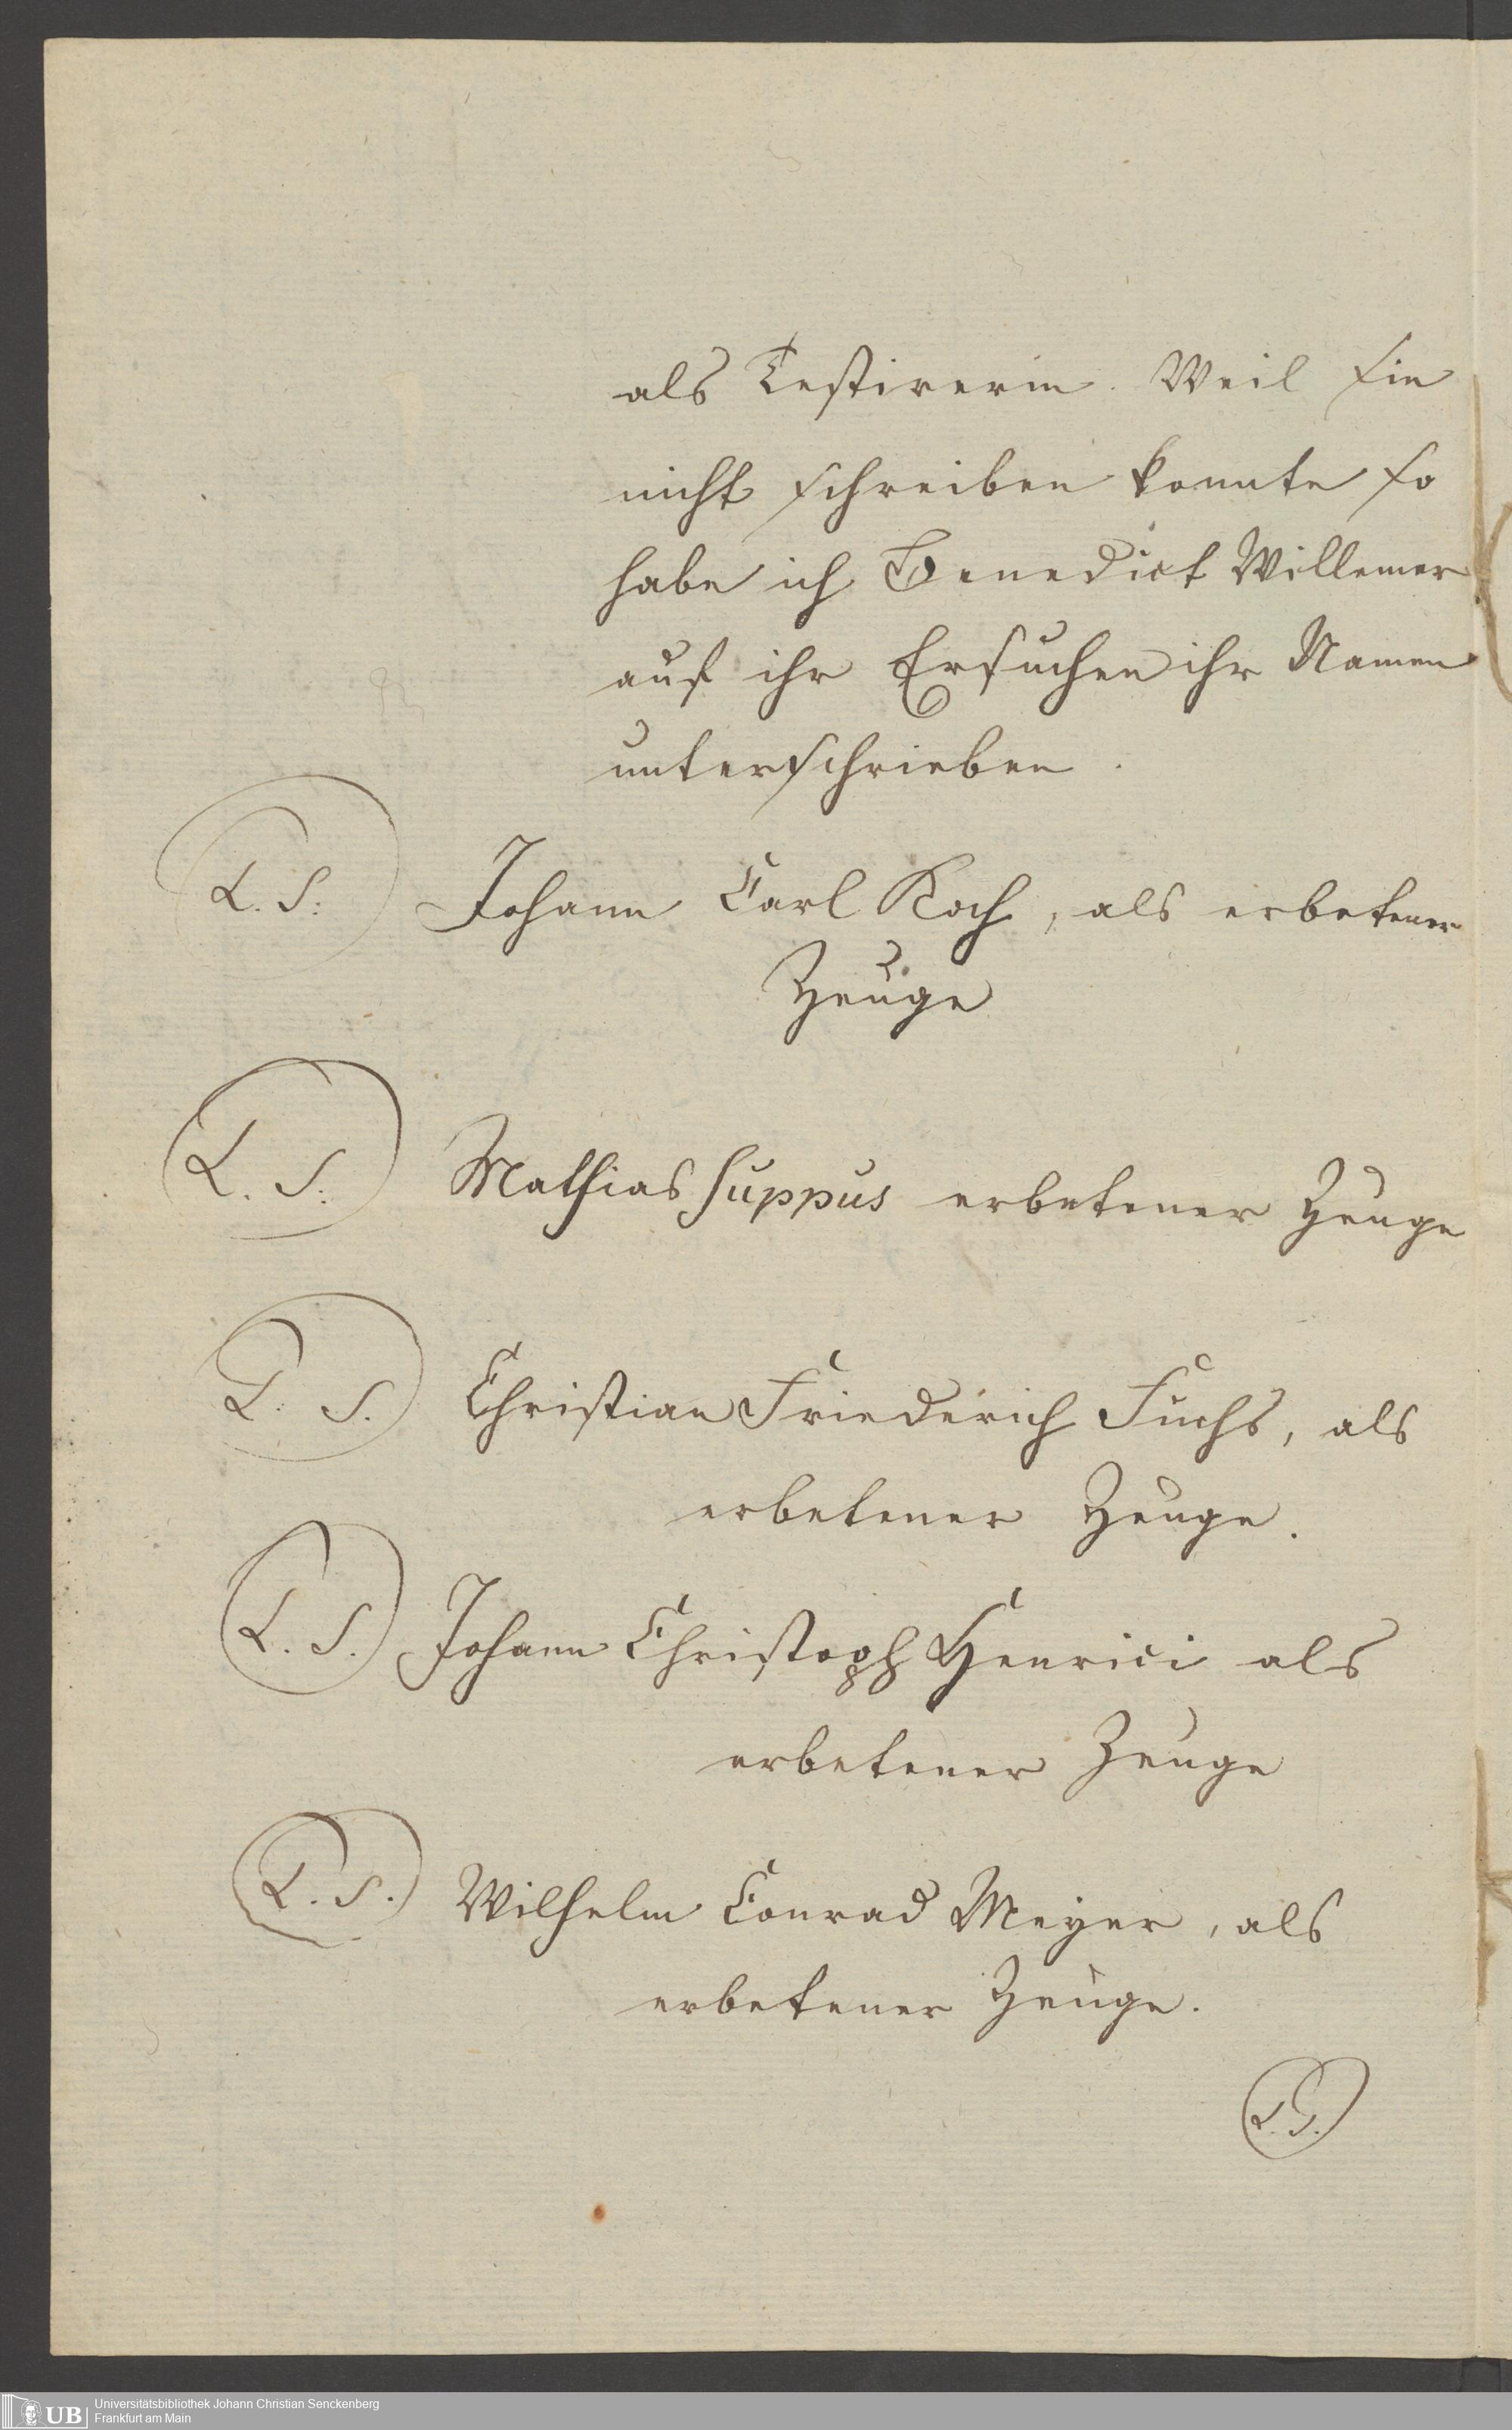 als Testirerin. Weil sie
nicht schreiben konnte so
habe ich Benedict Willemer
auf ihr Ersuchen ihr Namen
unterschrieben.
L. S: Johann Carl Koch, als erbetener
Zeuge
L. S: Mathias Suppus erbetener Zeuge
L. S. Christian Friederich Fuchs, als
erbetener Zeuge.
L. S. Johann Christoph Henrici als
erbetener Zeuge
L. S. Wilhelm Conrad Meyer, als
erbetener Zeuge.
L. S.
UB Universitätsbibliothek Johann Christian Senckenberg
Frankfurt am Main